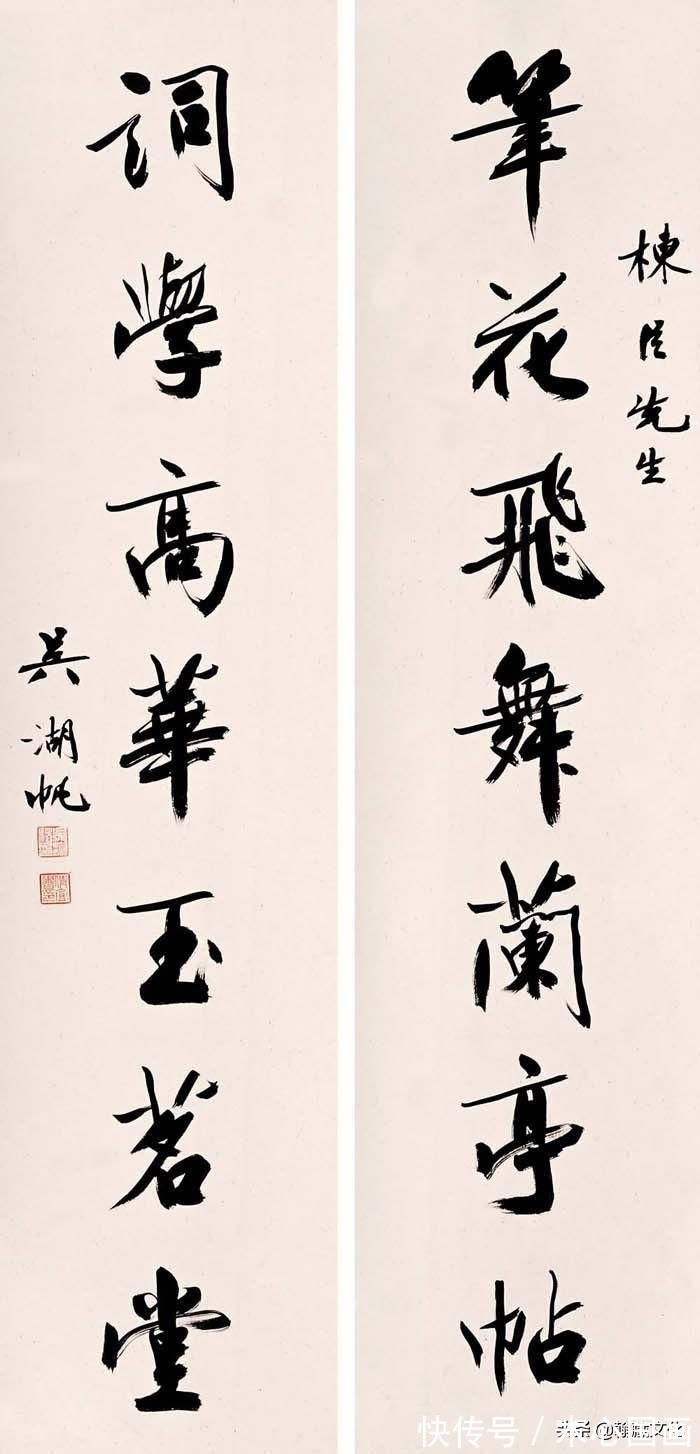 棟臣先生
筆花飛舞蘭亭帖
詞學高華玉茗堂
吳湖帆
快传号 /